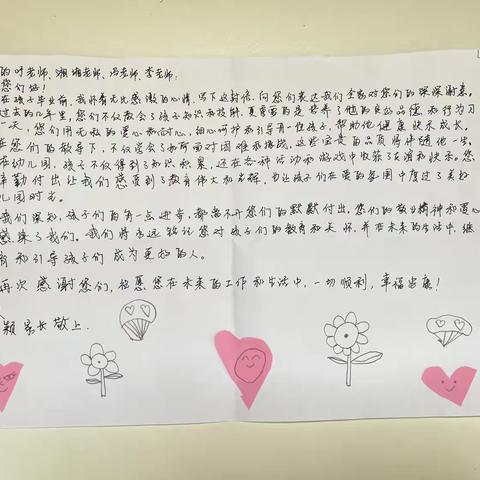 的叶老师、湘湘老师、冯老师、李老师:
您们好!
在孩子毕业前,我怀着无比感激的心情,写下这封信,向您们表达我们全家对您们的深深谢意。
过去的几年里,您们不仅教会了孩子知识而技能,更重要的是培养了他的良好品德和行为习
一天,您们用无私的爱心和耐心,细心呵护和引导着一位孩子,帮助他健康快乐成长。
在您们的教导下,不仅学会了如何面对困难和挑战,这些宝贵的品质将伴随他一生。
在幼儿园,孩子不仅得到了知识积累,还在各种活动和游戏中收获了友谊和快乐。您
辛勤付出让我们感受到了教育伟大和光辉,也让孩子们在爱的氛围中度过了美好
儿园时光。
我们深知,孩子们的每一点进步,都离不开您们的默默付出。您们的敬业精神和爱心
感染了我们。我们将永远铭记您对孩子们的教育和关怀,并在未来的生活中,继
育和引导孩子们成为更好的人。
再次感谢您们,祝愿您在未来的工作和生活中,一切顺利,幸福安康!
颖家长敬上.